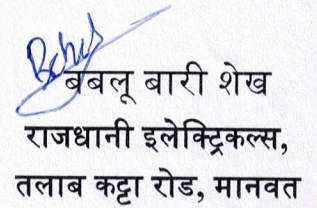 बबलू बारी शेख
राजधानी इलेक्ट्रिकल्स,
तलाब कट्टा रोड, मानवत